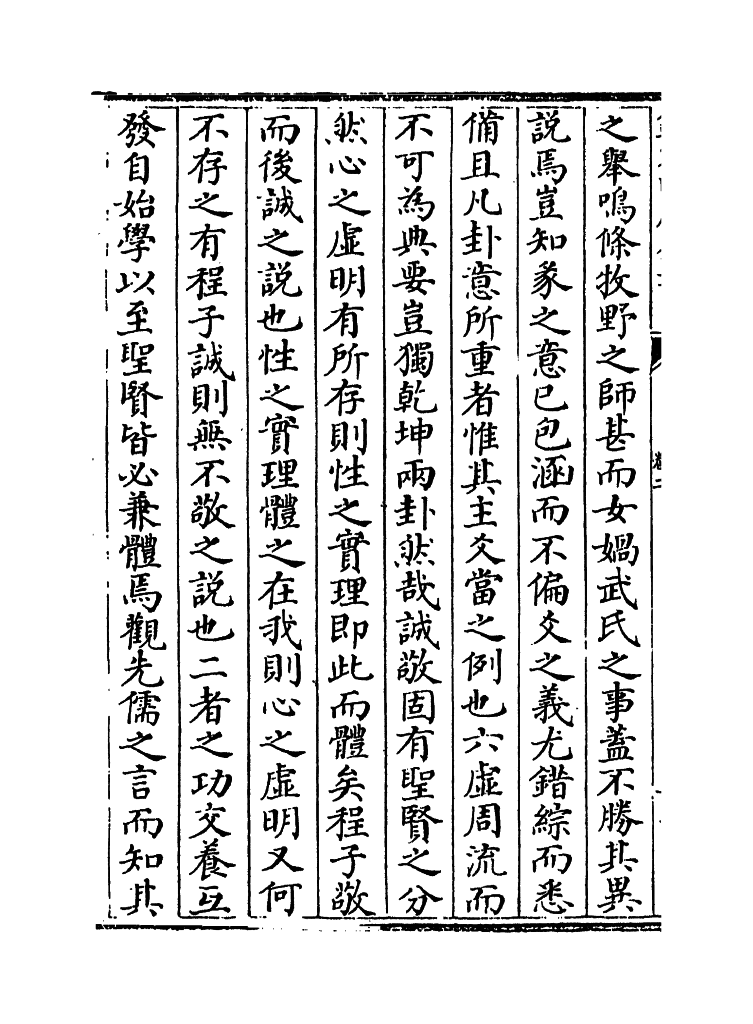 之舉鳴條牧野之師甚而女媧武氏之事蓋不勝其異
說焉豈知彖之意已包涵而不偏爻之義尤錯綜而悉
備且凡卦意所重者惟其主爻當之例也六虛周流而
不可為典要豈獨乾坤兩卦然哉誠敬固有聖賢之分
然心之虛明有所存則性之實理即此而體矣程子敬
而後誠之說也性之實理體之在我則心之虛明又何
不存之有程子誠則無不敬之說也二者之功交養互
發自始學以至聖賢皆必兼體焉觀先儒之言而知其